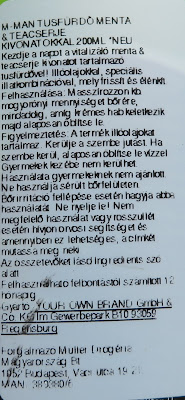 M-MAN TUSFÜRDŐ MENTA
& TEACSERJE
KIVONATOKKAL 200ML *NEU
Kezdje a napot a vitalizáló menta &
teacserje kivonatot tartalmazó
tusfürdővel! Illóolajokkal, speciális
illatkombinációval, mely frissít és élénkít.
Felhasználása: Masszírozzon kb.
mogyorónyi mennyiséget bőrére,
mindaddig, amíg krémes hab keletkezik
majd alaposan öblítse le.
Figyelmeztetés: A termék illóolajokat
tartalmaz. Kerülje a szembe jutást. Ha
szembe kerül, alaposan öblítse le vízzel
Gyermekek kezébe nem kerülhet.
Használata gyermekeknek nem ajánlott.
Ne használja sérült bőrfelületen.
Bőrirritáció fellépése esetén hagyja abba
használatát. Ne nyelje le! Nem
megfelelő használat vagy rosszullét
esetén hívjon orvosi segítséget és
amennyiben ez lehetséges, a címkét
mutassa meg neki.
Az összetevőket lásd Ingredients szó
alatt.
Felhasználható felbontástól számított 12
hónapig
Gyártó: YOUR OWN BRAND GmbH &
Co. KG Im Gewerbepark B10 93059
Regensburg
Forgalmazó Müller Drogéria
Magyarország Bt
1052 Budapest, Váci utca 19-21
MAN: